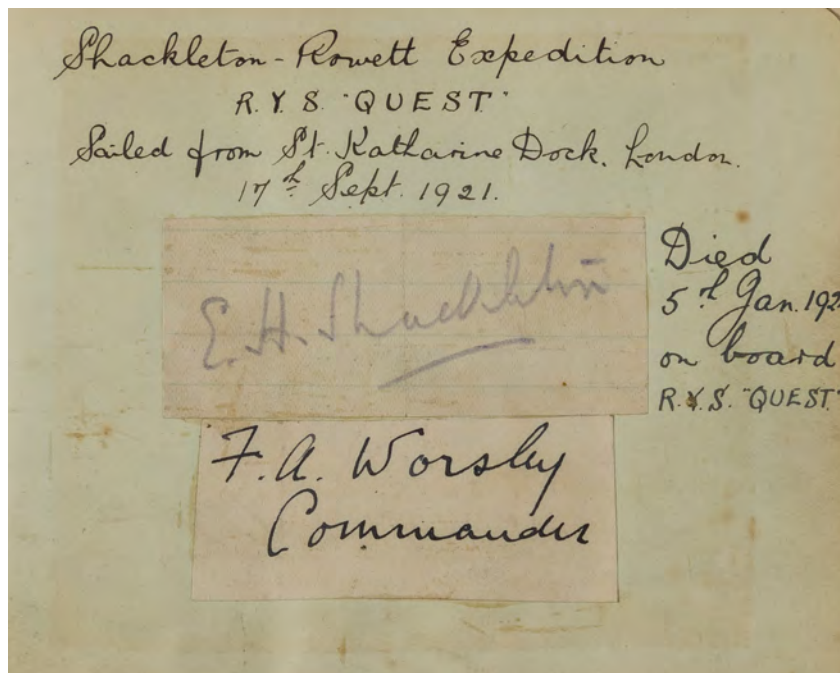 Shackleton-Rowett Expedition
R.Y.S. "QUEST"
Sailed from St. Katharine Dock. London.
17th Sept. 1921.
E.H. Shackleton
Died
5th Jan. 192
on board
R.Y.S. "QUEST"
F.A. Worsley
Commander